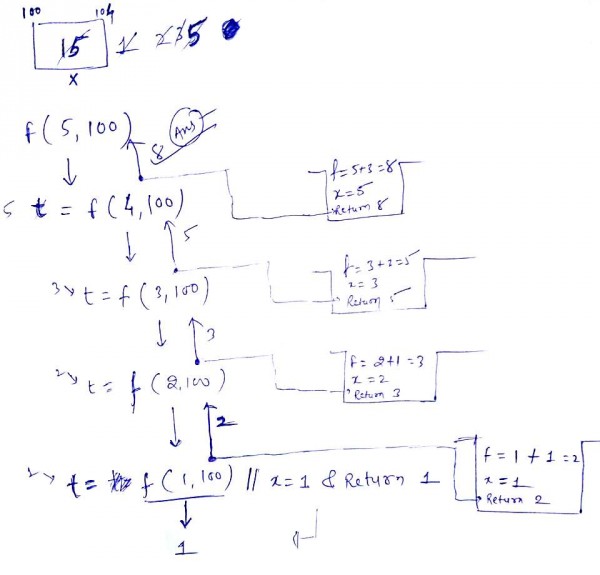 100 104
15 1 2 3 5
x
f(5,100) 8 Ans
f=5+3=8
x=5
Return 8
5 t = f(4,100) 5
f=3+2=5
x=3
Return 5
3 t = f(3,100) 3
f=2+1=3
x=2
Return 3
2 t = f(2,100) 2
f=1+1=2
x=1
Return 2
t = f(1,100) // x=1 & Return 1
1